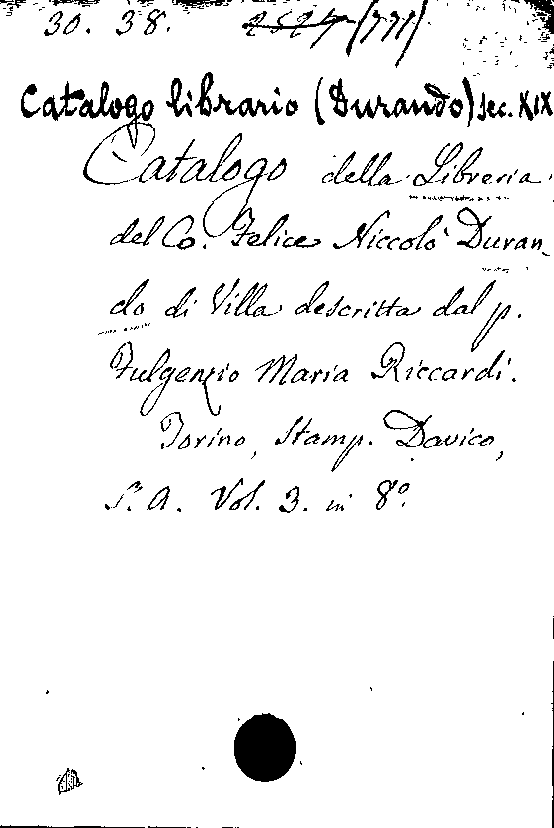 30. 38. 2527 (771)
Catalogo librario (Durando) sec. XIX
Catalogo della Libreria
del Co. Felice Niccolò Duran
do di Villa descritta dal p.
Fulgenzio Maria Riccardi.
Torino, Stamp. Davico,
S. A. Vol. 3. in 8º.